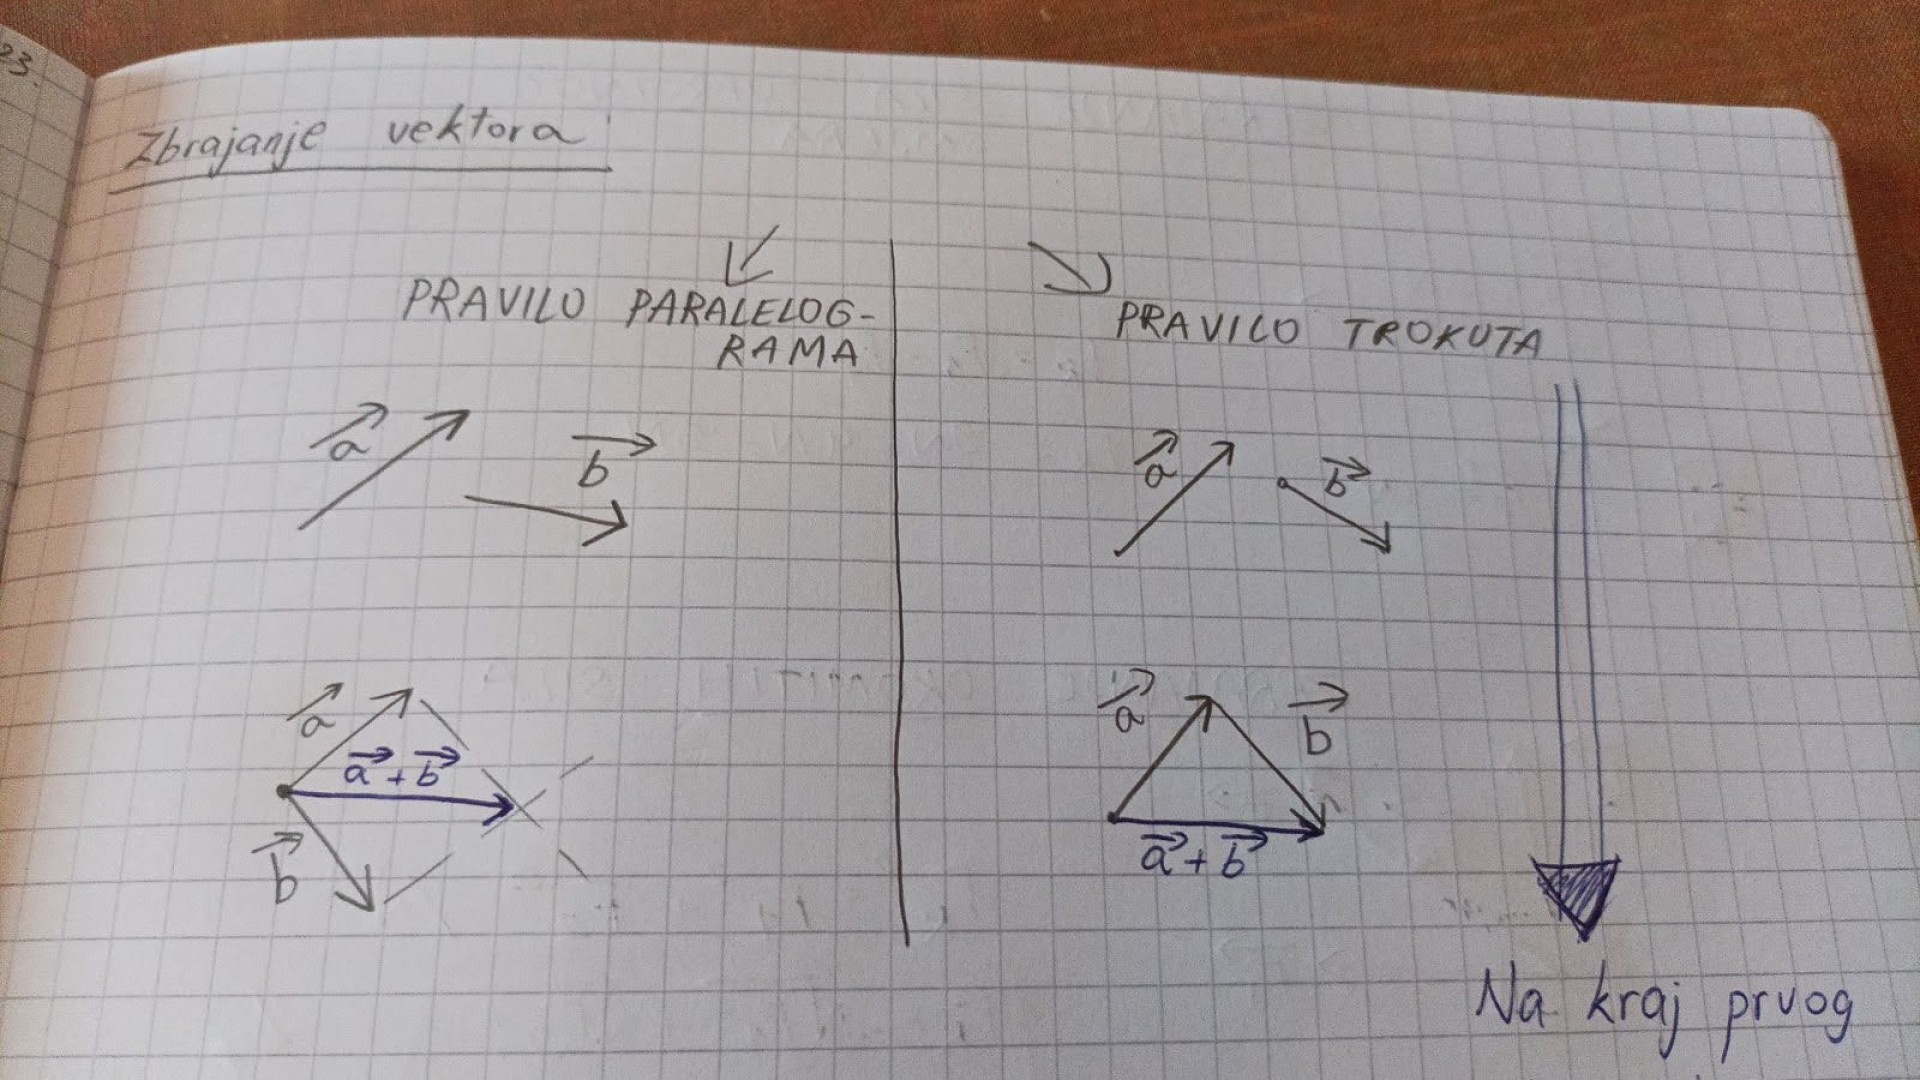 23.
Zbrajanje vektora
PRAVILO PARALELOG-
RAMA
a b
a
a + b
b
PRAVILO TROKUTA
a b
a b
a + b
Na kraj prvog